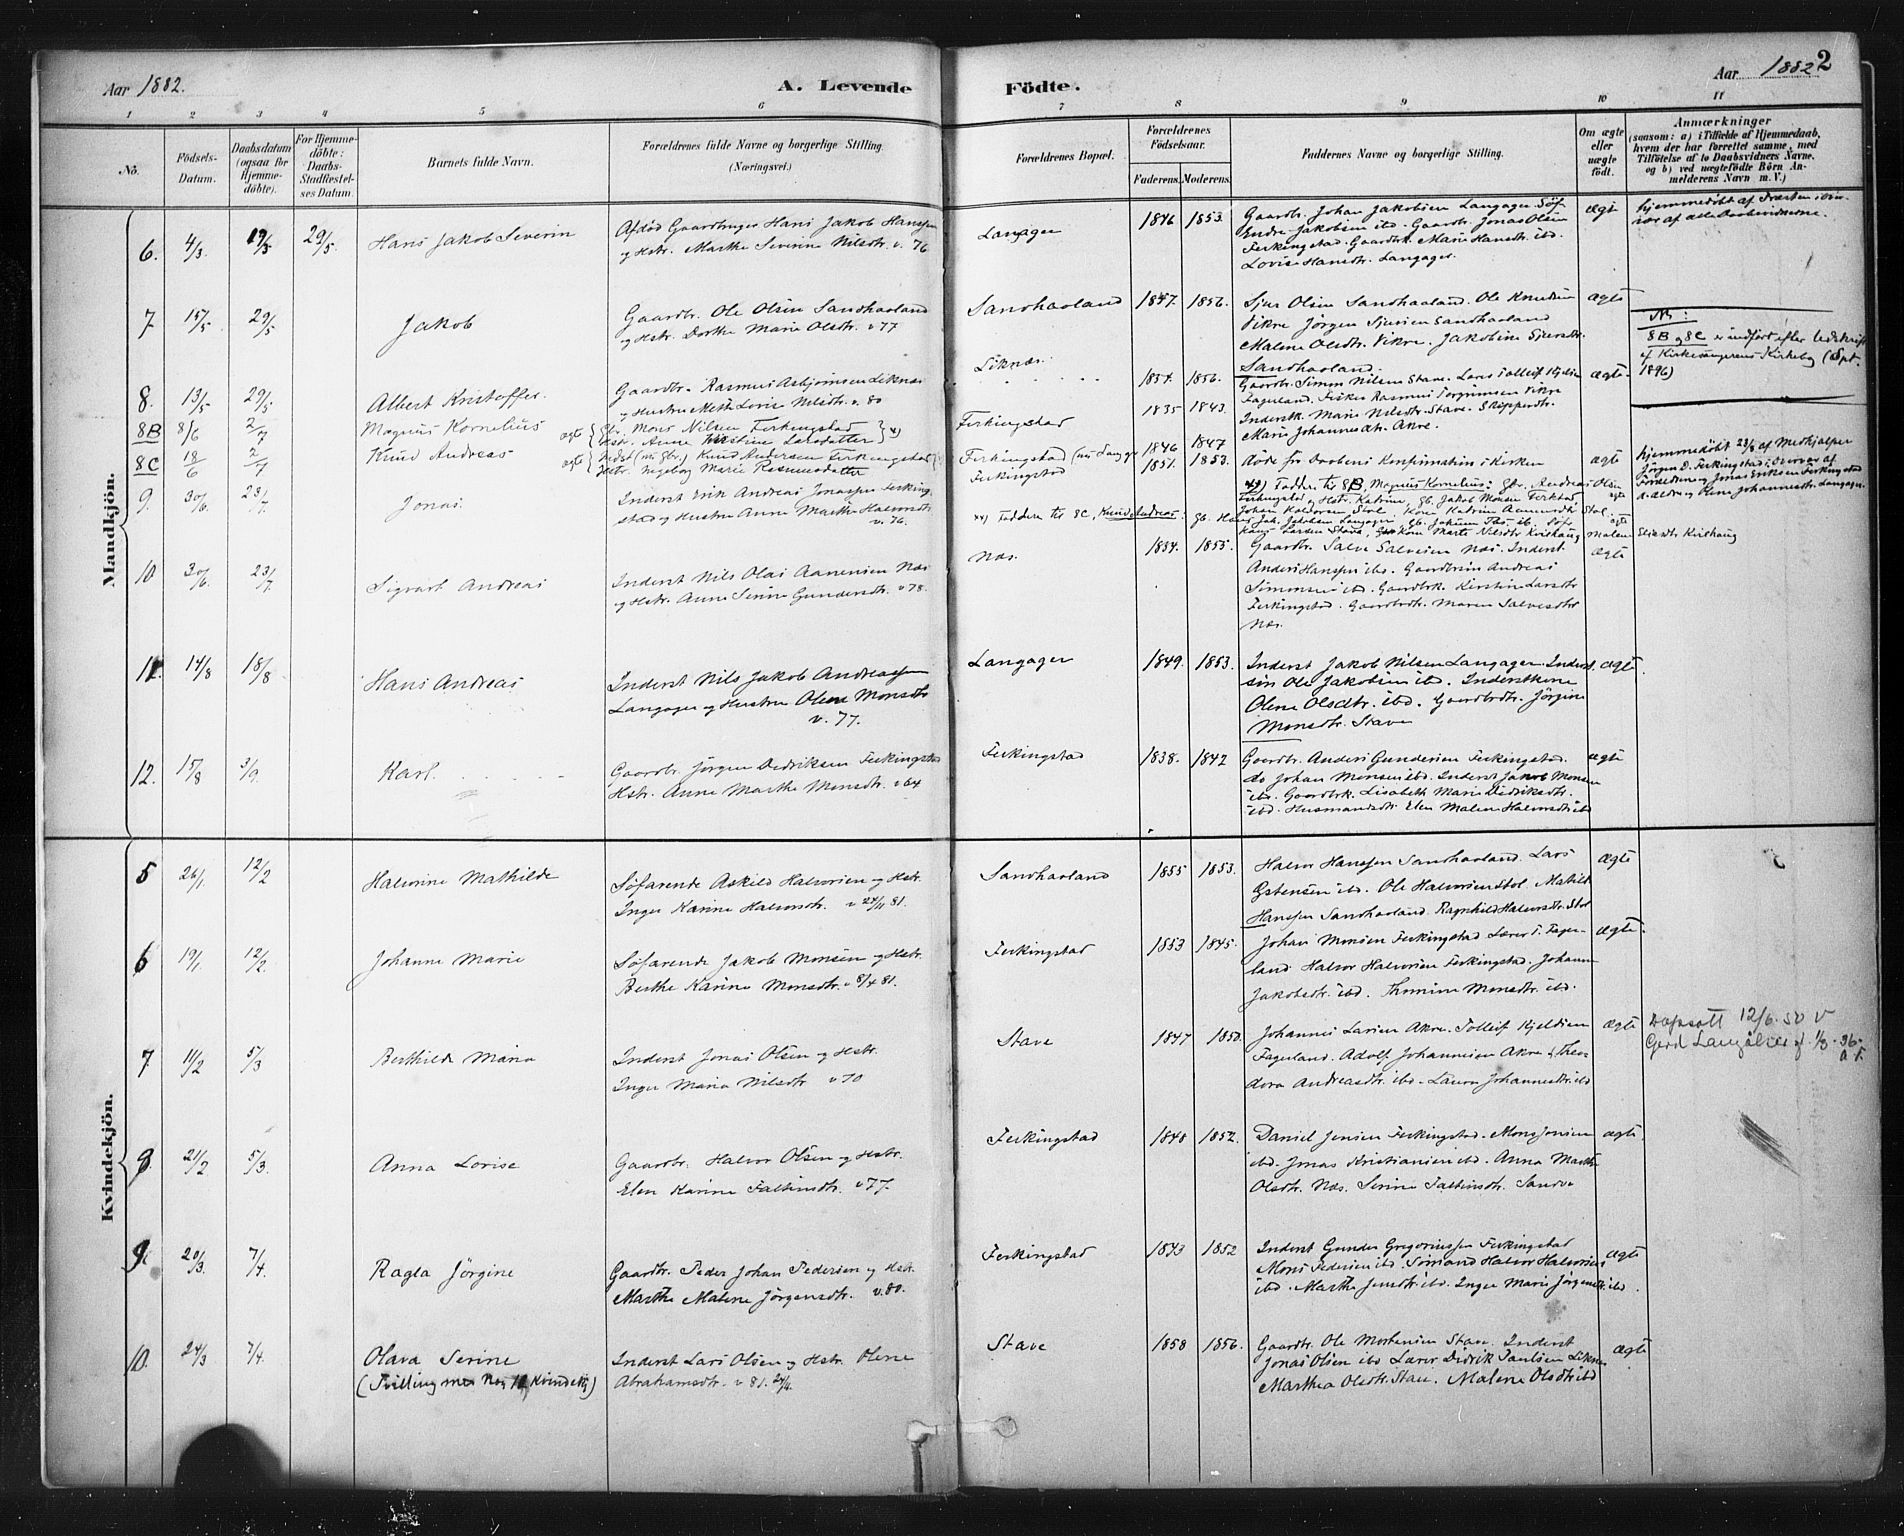 Aar 1882.
A. Levende Födte.
Aar 1882 2
1 2 3 4 5 6 7 8 9 10 11
No.
Födsels-Datum.
Daabsdatum (ogsaa for Hjemmedöbte).
For Hjemmedöbte: Daabs-Stadfæstelses Datum.
Barnets fulde Navn.
Forældrenes fulde Navne og borgerlige Stilling. (Næringsvei.)
Forældrenes Bopæl.
Forældrenes Födselsaar.
Faderens. Moderens.
Faddernes Navne og borgerlige Stilling.
Om ægte eller uægte födt.
Anmærkninger
(saasom: a) i Tilfælde af Hjemmedaab, hvem der har forrettet samme, med Tilföielse af to Daabsvidners Navne, og b) ved uægtefödte Börn Anmelderens Navn m. V.)
Mandkjön.
6. 4/3. 19/3 29/5. Hans Jakob Severin
Afdöd Gaardbruger Hans Jakob Hanssen
og Hstr. Marthe Severine Nilsdtr. v. 76
Langager 1846 1853.
Gaardbr. Johan Jakobsen Langager Söf.
Endre Jakobsen ibd. Gaardbr. Jonas Olsen
Ferkingstad. Gaardbrk. Marie Hansdtr. ibd.
Lovise Hansdtr. Langager.
ægte
hjemmedöbt af Præsten i Overvær af alle Daabsvidnerne.
7. 15/5 29/5 Jakob
Gaardbr. Ole Olsen Sandhaaland
og Hstr. Dorthe Marie Olsdtr. v 77
Sandhaaland 1847. 1856.
Sjur Olsen Sandhaaland. Ole Knudsen
Vikre Jörgen Sjursen Sandhaaland
Malene Olsdtr. Vikre. Jakobine Sjursdtr.
Sandhaaland.
ægte
NB:
8B og 8C er indfört efter Udskrift
af Kirkesangerens Kirkebog (Sept.
1896)
8. 13/5 29/5 Albert Kristoffer.
Gaardbr. Rasmus Asbjörnsen Liknæs
og Hustru Mette Lovise Nilsdtr. v. 80
Liknæs. 1854. 1856.
Gaardbr. Simon Nilsen Stave. Lars Tollefs. Kjelsen
Fagerland. Fisker Rasmus Torgrimsen Vikre
Inderstk. Marie Nilsdtr. Stave. Skipperdtr.
Marie Johannesdtr. Akre.
ægte
8B 8/6 2/7 Magnus Kornelius ægte
Gbr. Mons Nilsen Ferkingstad
Hstr. Anne Kristine Larsdatter
Ferkingstad 1835 1843.
8C 18/6 2/7 Knud Andreas ægte
Indst (nu Gbr.) Knud Andersen Ferkingstad
Hstr. Ingeborg Marie Rasmusdatter
Ferkingstad (nu Langager 1846 1847
9. 30/6. 23/7. Jonas.
Inderst Erik Andreas Jonassen Ferking-
stad og Hustru Anne Marthe Halvorsdtr
v. 76.
Ferkingstad 1851. 1853.
döde før Daabens Konfirmation i Kirken
ægte
hjemmedöbt 23/7 af Medhjelper
Jörgen D. Ferkingstad i Overvær af
Forældrene og Jonas Eriksen Ferkingstad
Johannesdtr. Langager
*) Faddere til 8B, Magnus Kornelius: gbr. Andreas Olsen
Ferkingstad og Hstr. Katrine, gb. Jakob Monsen Ferkstad
Johan Haldorsen Stol, Kone Katrine Aamundsdtr Stol.
**) Faddere til 8C, Knud Andreas: gb. Hans Jak. Jakobsen Langager, gb. Jakum ibd. Söf.
Knut Larsen Stava, Kone Marte Nilsdtr Kvilhaug Malene
10 30/6. 23/7. Sigvart Andreas
Inderst Nils Olai Aanensen Næs
og Hstr. Anne Serine Gundersdtr. v 78.
Næs. 1854. 1855.
Gaardbr. Salve Salvesen Næs. Inderst
Anders Hanssen ibd. Gaardbrsön Andreas
Simonsen ibd. Gaardbrk. Kirstin Larsdtr
Ferkingstad. Gaardbrdtr. Maren Salvesdtr
Næs.
ægte
11. 14/8 18/8 Hans Andreas
Inderst Nils Jakob Andreassen
Langager og Hustru Olene Monsdtr
v. 77.
Langager 1849. 1853.
Inderst Jakob Nilsen Langager. Inderst-
sön Ole Jakobsen ibd. Inderstkone
Olene Olsdtr. ibd. Gaardbrdtr. Jörgine
Monsdtr. Stave
ægte
12. 15/8 3/9. Karl.
Gaardbr. Jörgen Didriksen Ferkingstad
Hstr. Anne Marthe Monsdtr. v 64
Ferkingstad 1838. 1842
Gaardbr. Anders Gundersen Ferkingstad.
do Johan Monsen ibd. Inderst Jakob Monsen
ibd. Gaardbrk. Lisabeth Marie Didriksdtr.
ibd. Husmandsdtr. Elen Malene Halvorsdtr ibd
ægte
Kvindekjön.
5 26/1. 12/2 Halvorine Mathilde
Söfarende Askild Halvorsen og Hstr.
Inger Karine Halvorsdtr. v 24/11 81.
Sandhaaland 1855 1853.
Halvor Hanssen Sandhaaland. Lars
Gstensen ibd. Ole Halvorsen Stol. Matild
Hanssen Sandhaaland. Ragnhild Halvorsdtr. Stol
ægte
6 19/1 12/2. Johanne Marie
Söfarende Jakob Monsen og Hstr.
Berthe Karine Monsdtr. v 8/4 81.
Ferkingstad 1853 1845.
Johan Monsen Ferkingstad Lærer T. Fager-
land Halvor Halvorsen Ferkingstad. Johanne
Jakobsdtr. ibd. Thomine Monsdtr. ibd.
ægte.
7 11/2 5/3 Berthilde Maria
Inderst Jonas Olsen og Hstr.
Inger Maria Nilsdtr. v 70
Stave 1847 1850.
Johannes Larsen Akre. Tollef Kjeldsen
Fagerland. Adolf Johannesen Akre. Theo-
dora Andreasdtr. ibd. Laura Johannesdtr. ibd
ægte
Dåpsatt 12/6. 50 v
8. 21/2 5/3. Anna Lovise
Gaardbr. Halvor Olsen og Hstr.
Elen Karine Faltinsdtr. v 77.
Ferkingstad 1848 1852.
Daniel Jensen Ferkingstad. Mons Jonsen
ibd. Jonas Kristiansen ibd. Anna Marthe
Olsdtr. Næs. Serine Faltinsdtr. Sandve
ægte
9. 20/3. 7/4. Ragla Jörgine
Gaardbr. Peder Johan Pedersen og Hstr.
Marthe Malene Jörgensdtr. v. 80.
Ferkingstad 1843 1852
Inderst Gunder Gregoriussen Ferkingstad
Mons Pedersen ibd. Sömand Halvor Halvorsen
ibd. Marthe Jensdtr. ibd. Inger Marie Jörgensdtr. ibd.
ægte
10. 24/3 7/4. Olava Serine
(Tvilling med No 11 Kvindekj)
Inderst Lars Olsen og Hstr. Olene
Abrahamsdtr. v 81. 24/4.
Stave 1858 1856.
Gaardbr. Ole Mortensen Stave. Inderst
Jonas Olsen ibd Lærer Didrik Paulsen Liknæs
Marthea Olsdtr. Stave. Malene Olsdtr ibd
ægte